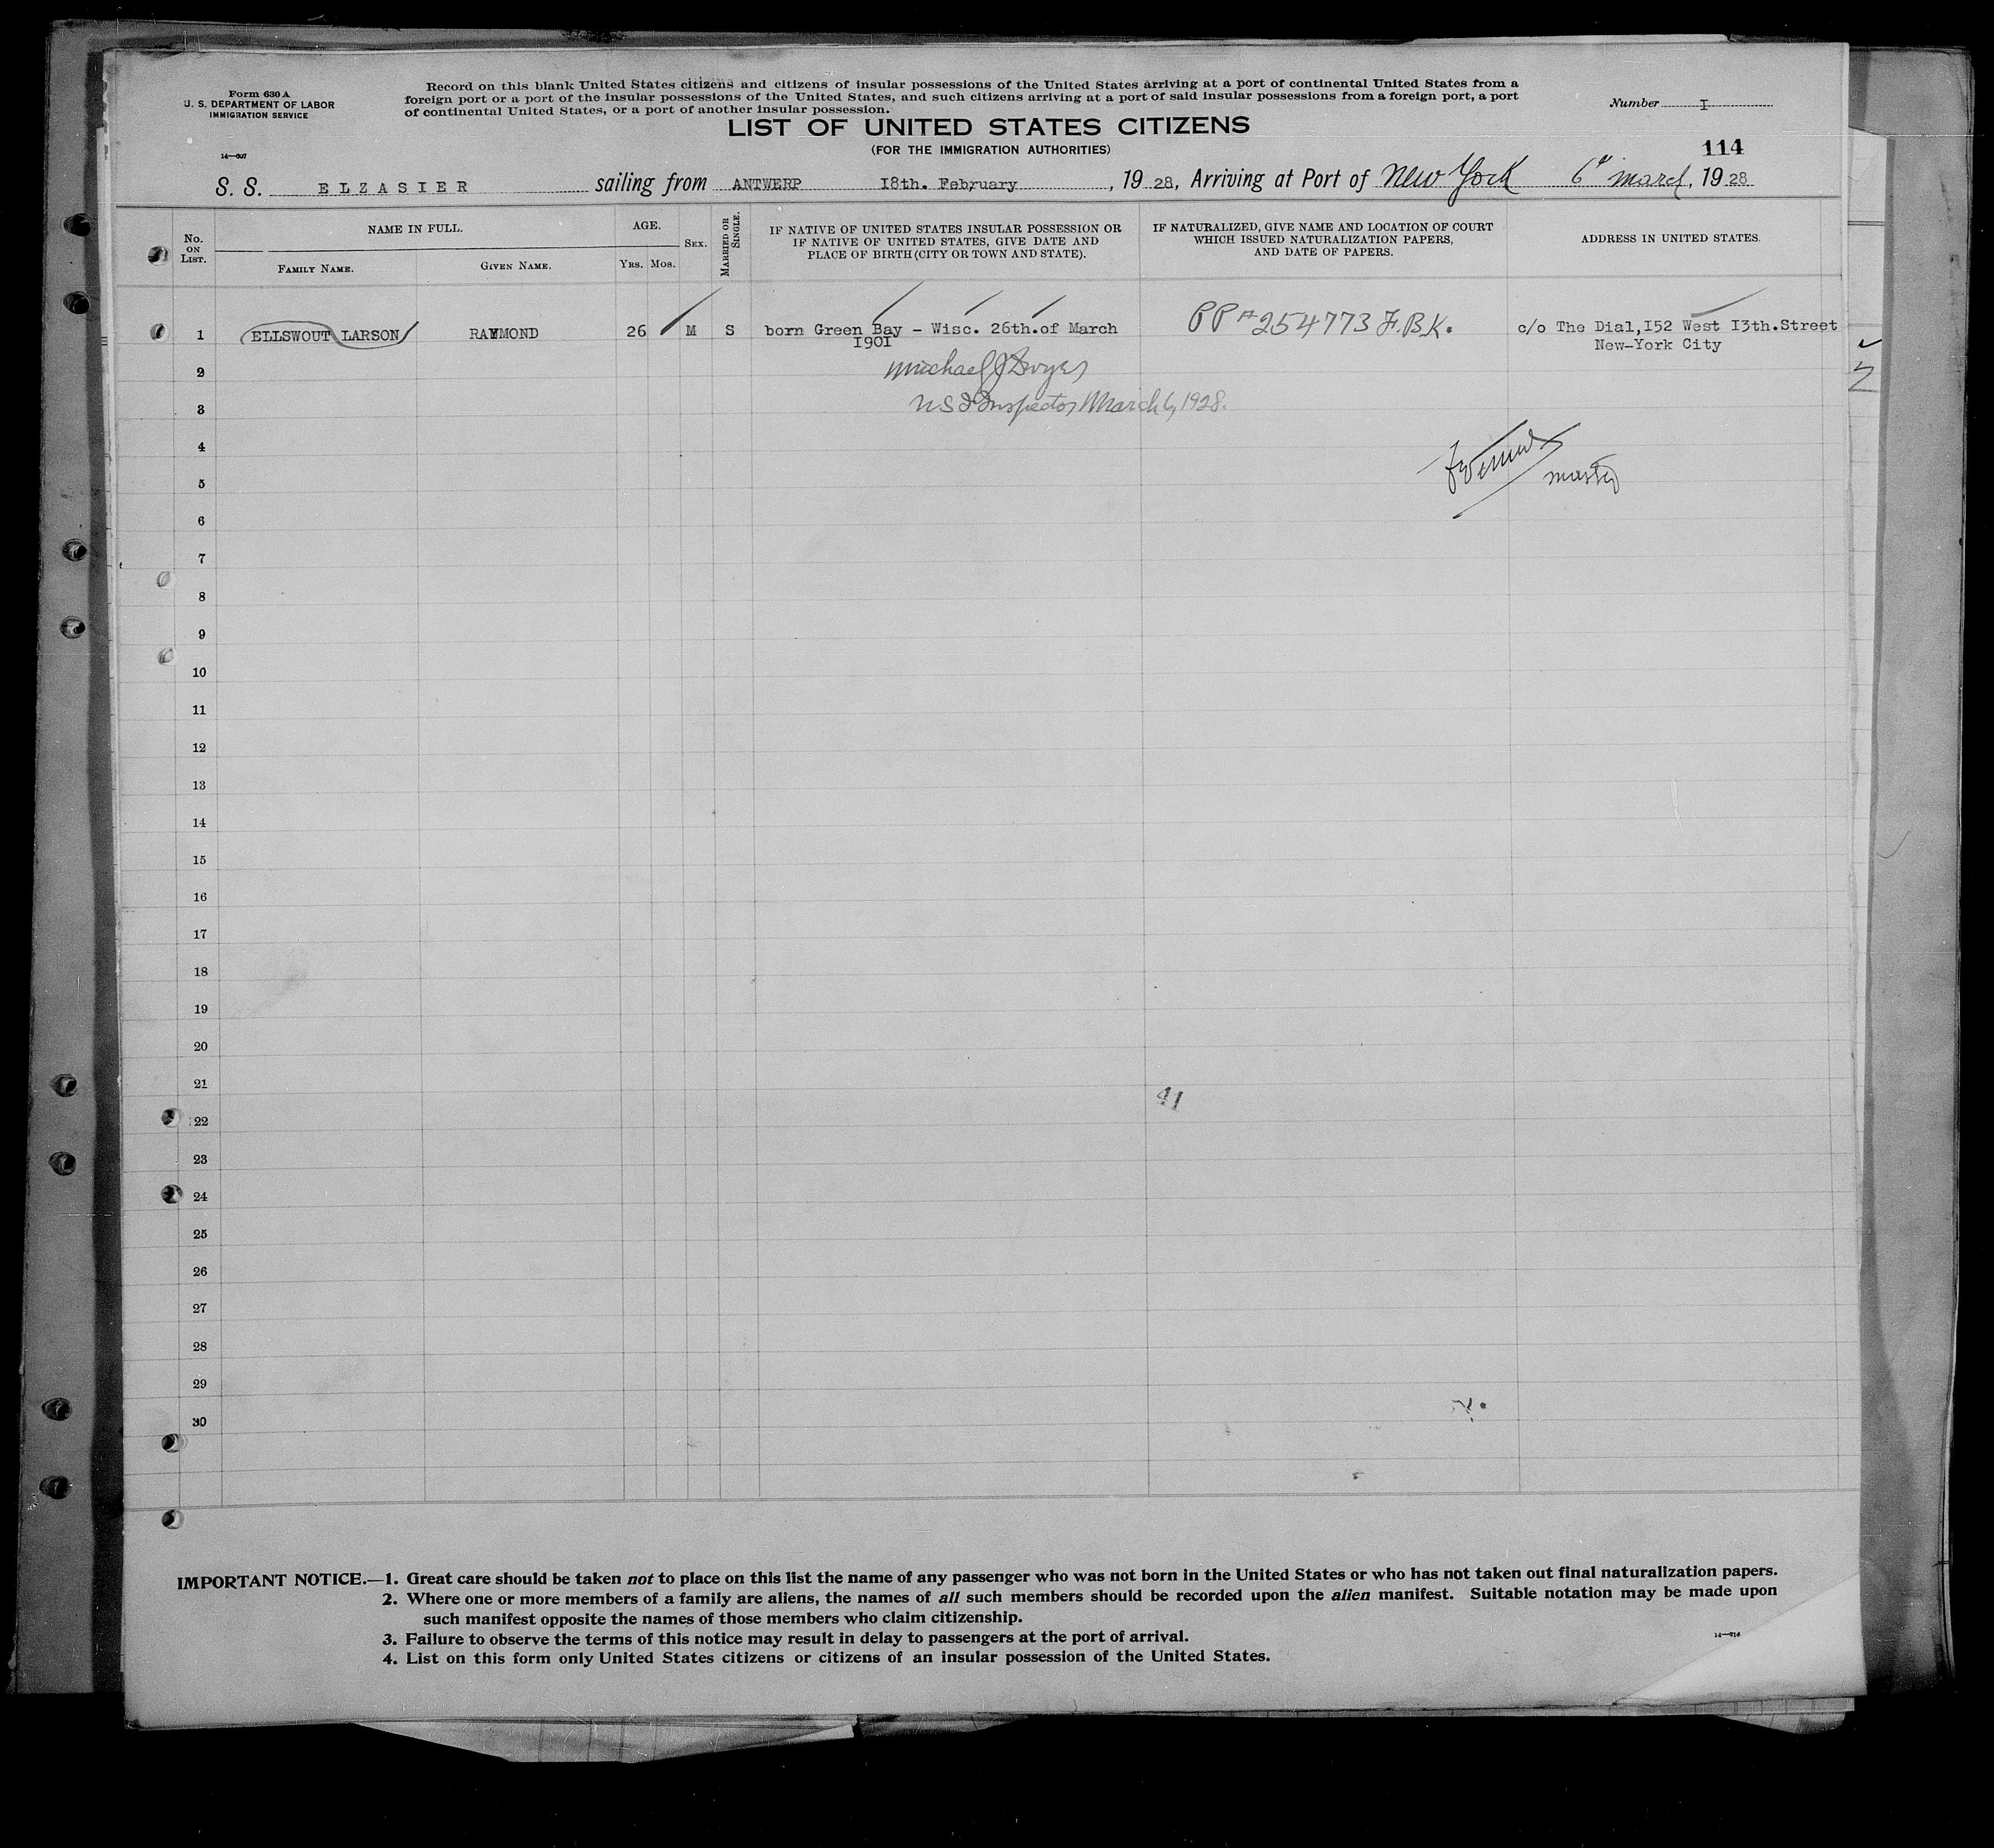 Form 630 A
U. S. DEPARTMENT OF LABOR
IMMIGRATION SERVICE
14—607
Record on this blank United States citizens and citizens of insular possessions of the United States arriving at a port of continental United States from a
foreign port or a port of the insular possessions of the United States, and such citizens arriving at a port of said insular possessions from a foreign port, a port
of continental United States, or a port of another insular possession.
Number I
LIST OF UNITED STATES CITIZENS
(FOR THE IMMIGRATION AUTHORITIES)
114
S. S. ELZASIER sailing from ANTWERP 18th. February, 19 28, Arriving at Port of New York 6th march, 19 28
No. ON LIST.
NAME IN FULL.
FAMILY NAME.
GIVEN NAME.
AGE.
YRS. MOS.
SEX.
MARRIED OR SINGLE.
IF NATIVE OF UNITED STATES INSULAR POSSESSION OR
IF NATIVE OF UNITED STATES, GIVE DATE AND
PLACE OF BIRTH (CITY OR TOWN AND STATE).
IF NATURALIZED, GIVE NAME AND LOCATION OF COURT
WHICH ISSUED NATURALIZATION PAPERS,
AND DATE OF PAPERS.
ADDRESS IN UNITED STATES.
1 ELLSWOUT LARSON RAYMOND 26 M S born Green Bay - Wisc. 26th.of March PP # 254773 F.B.K. c/o The Dial,I52 West I3th.Street
I90I New-York City
2 Michael J Dwyer
3 U S I Inspector March 6, 1928.
4
5 master
6
7
8
9
10
11
12
13
14
15
16
17
18
19
20
21
41
22
23
24
25
26
27
28
29
30
IMPORTANT NOTICE.—1. Great care should be taken not to place on this list the name of any passenger who was not born in the United States or who has not taken out final naturalization papers.
2. Where one or more members of a family are aliens, the names of all such members should be recorded upon the alien manifest. Suitable notation may be made upon
such manifest opposite the names of those members who claim citizenship.
3. Failure to observe the terms of this notice may result in delay to passengers at the port of arrival.
4. List on this form only United States citizens or citizens of an insular possession of the United States.